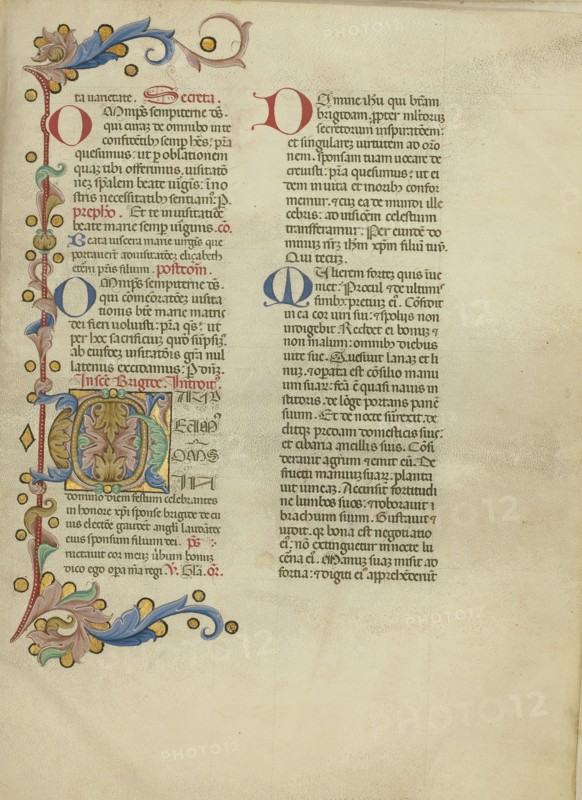 ta uanetate. Secreta.
Omnips sempiterne ds.
qui cunaz de omnibo in te
confitetibo semp hes: pra
quesumus: ut p oblationem
quaz tibi offerimus. uisitato
nez spalem beate uirgis: in o
stris necessitatibo sentiam. P.
prepho. Et te in uisitatide
beate marie semp uirginis. co.
Beata uiscera marie uirgis que
portauert
eterni pris filium. postcom.
Omnips sempiterne ds.
qui comeorades uisita
tionis bte marie matris
dei fieri uoluisti: pra qs: ut
per hoc sacrificiuz
ab eiusdez nul
latenus excidamus. P dnz.
In sce Brigide. Introit.
GAUD
EAM
OMS
IN
domino diem festum celebrantes
in honore xpi sponse brigide de cu
ius electoe gaudet angli laudates
eius sponsum filium dei. ps
ructauit cor meuz ubum bonuz
dico ego opa mea regi. V. Gla. or.
Domine ihu qui btam
brigidam. ppter mltoruz
secretorum inspiratoem:
et singularez uirtutem ad oro
nem. sponsam tuam uocare de
creuisti. pra quesumus: ut ei
dem in uita et moribo confor
memur. et cuz ea de mundi ille
cebris: ad uisioem celestium
transferamur. Per eunde do
minuz nrz ihm xpm filiu tuu.
Qui tecuz.
Mulierem fortez quis iue
niet. Procul et de ultimis
finibo preciuz ei. Cofidit
in ea cor uiri sui: et spolijs non
indigebit. Reddet ei bonuz et
non malum: omnibo diebus
uite sue. Quesiuit lanaz et li
nuz. et opata est cosilio manu
um suaruz. fca e quasi nauis in
stitoris. de loge portans pane
suum. Et de nocte surexit. de
ditqz predam domesticis suis:
et cibaria ancillis suis. Cosi
derauit agrum et emit eu. De
fructu manuuz suaruz. planta
uit uineaz. Accinsit fortitudi
ne lumbos suos: et roborauit
brachium suum. Gustauit et
uidit. qr bona est negociatio
ei. no extinguetur in nocte lu
cerna ei. Manuz suaz misit ad
fortia: et digiti ei apprehederut